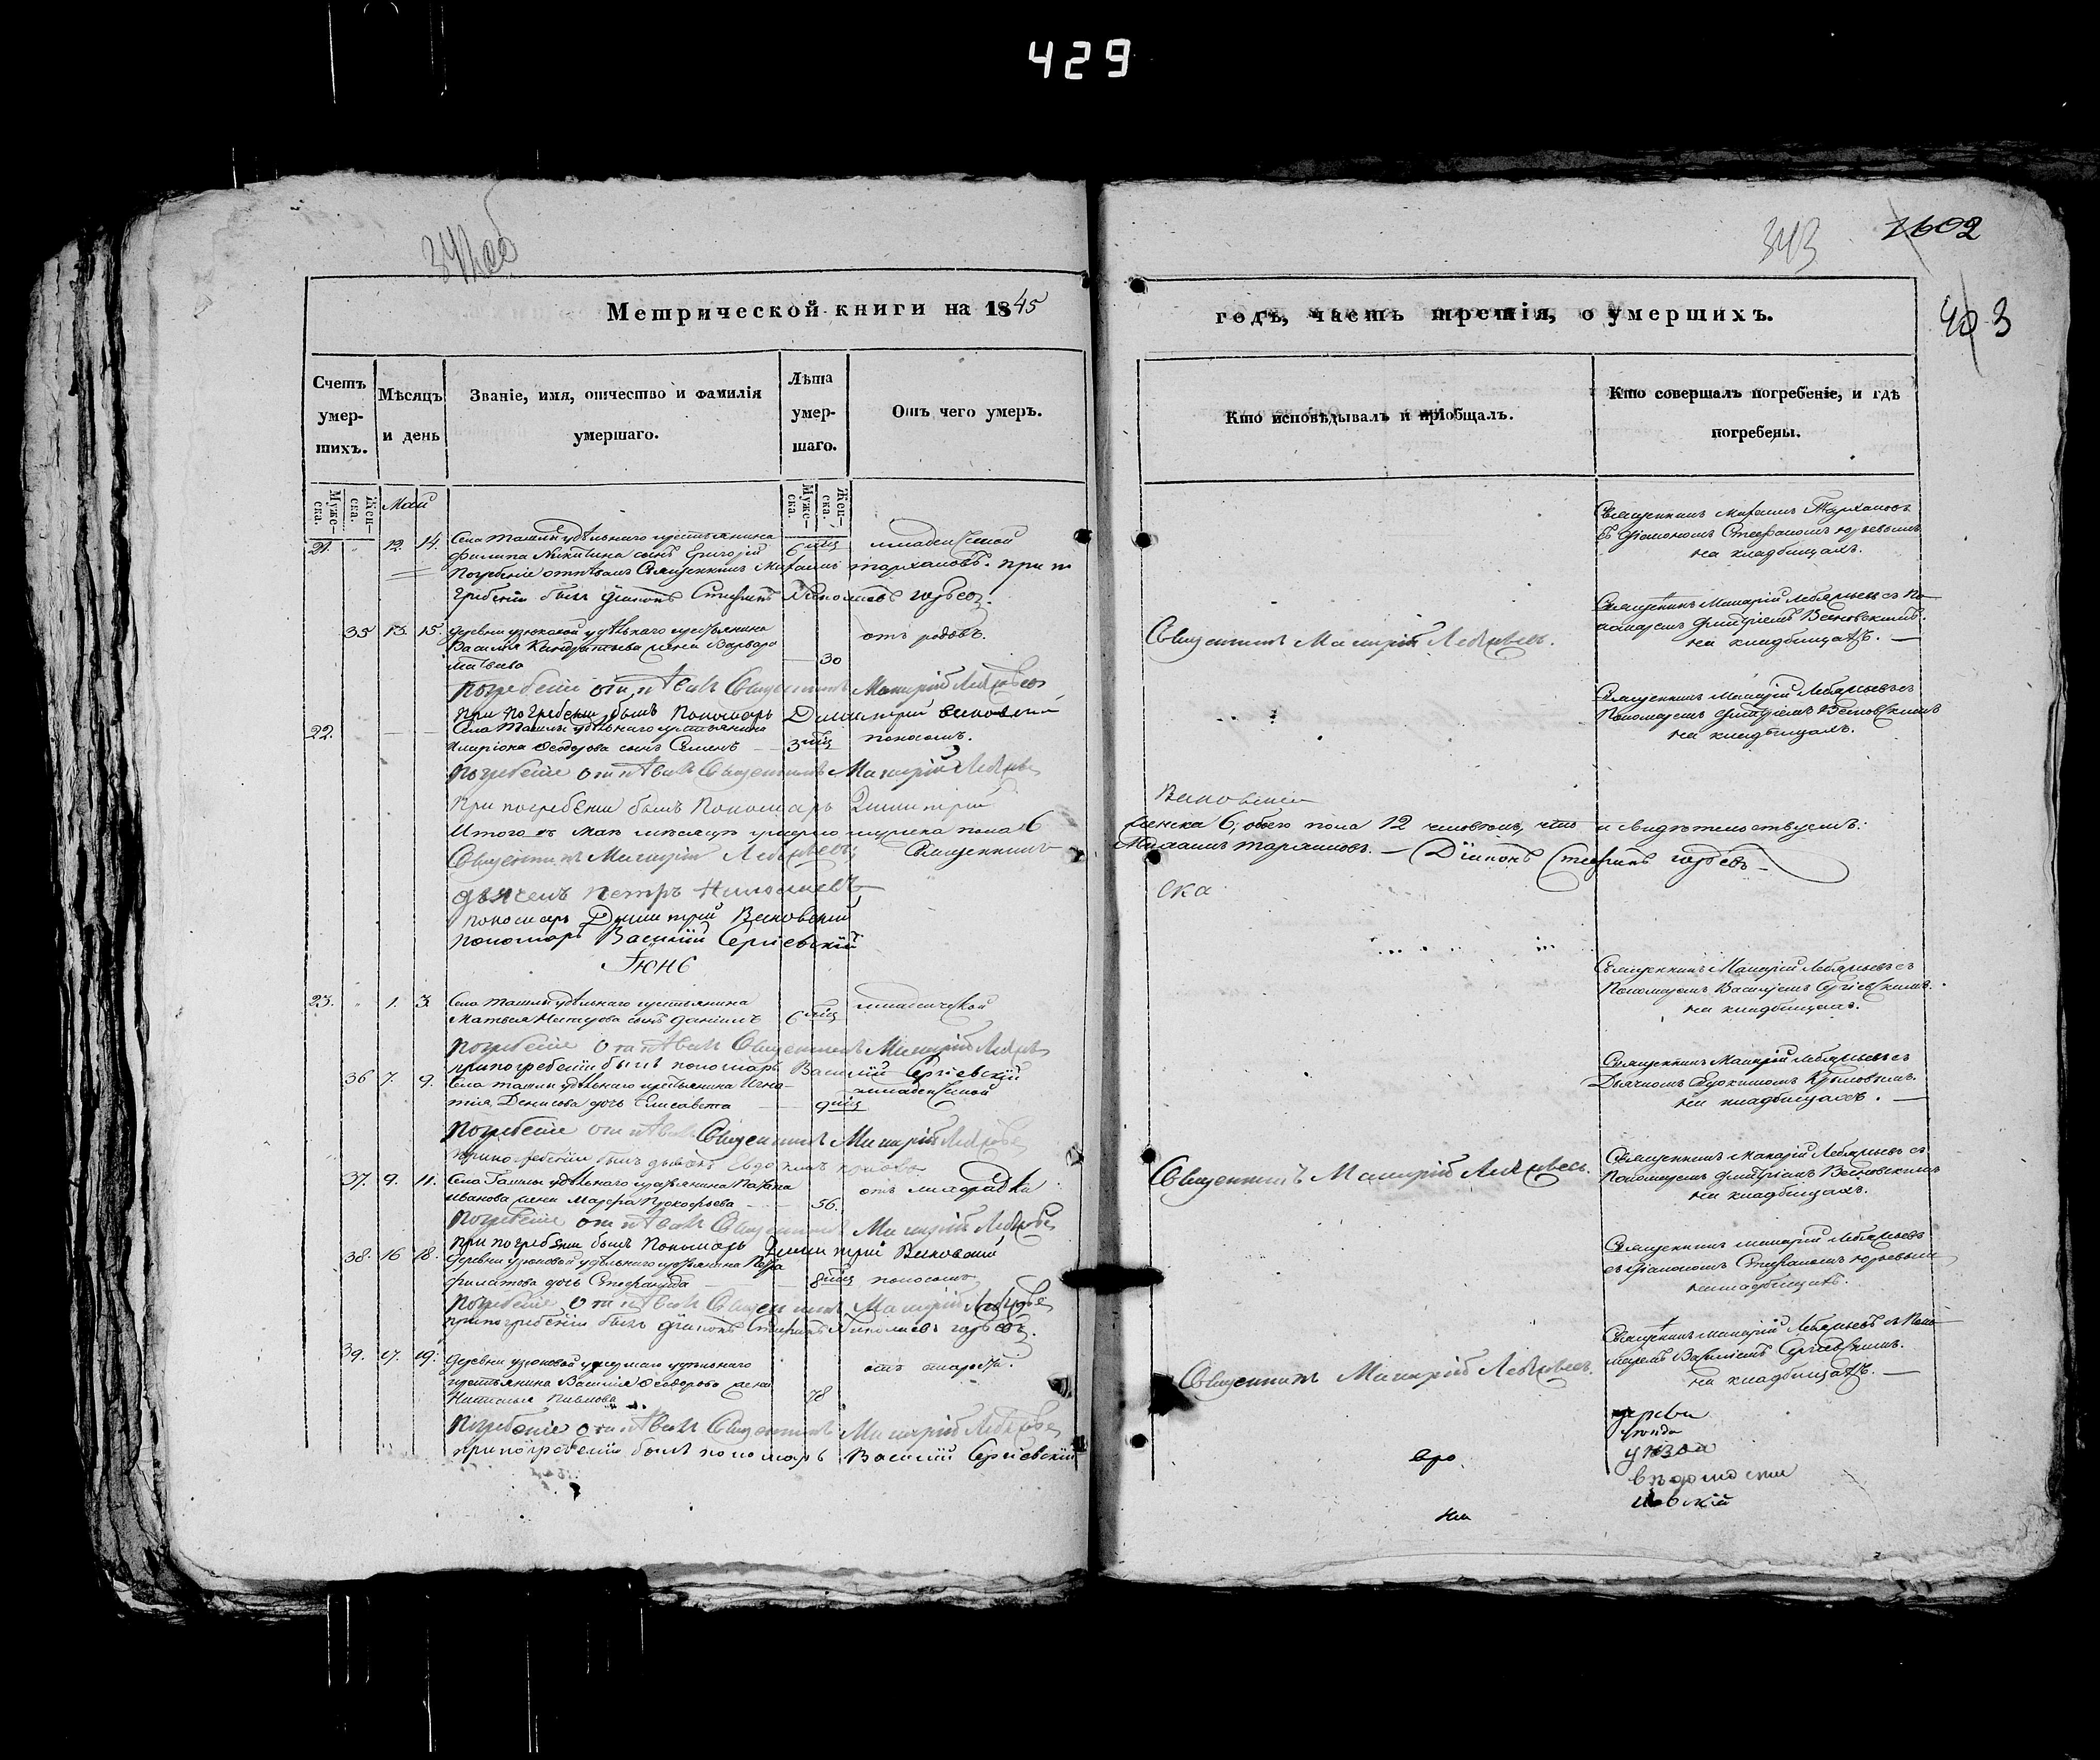 429
342 об
343
1602
403
Метрической книги на 1845
годъ, часть третія, о умершихъ.
Счетъ умер-шихъ.
Мѣсяцъ и день
Званіе, имя, отчество и фамилія умершаго.
Лѣта умер-шаго.
Отъ чего умеръ.
Кто исповѣдывалъ и пріобщалъ.
Кто совершалъ погребеніе, и гдѣ погребены.
Муже-ска.
Жен-ска.
Май
Муже-ска.
Жен-ска.
21. 12. 14. Села Ташлы удѣльнаго крестьянина
Филипа Никитина сынъ Григорій 6 мѣс младенческой
Погребеніе отпѣвалъ Священникъ Михаилъ Тархановъ. При по
гребеніи былъ Діаконъ Стефанъ Юрьевъ.
Священникъ Михаилъ Тархановъ
съ Діакономъ Стефаномъ Юрьевымъ
на кладбищахъ.
35 13. 15. Деревни Узюковой удѣльнаго крестьянина
Василья Кондратьева жена Варвара
Матвѣева 30 отъ родовъ.
Священникъ Макарій Лебяжьевъ.
Священникъ Макарій Лебяжьевъ съ По
намаремъ Димитріемъ Весновскимъ.
на кладбищахъ.
Погребеніе отпѣвалъ Священникъ Макарій Лебяжьевъ
При погребеніи былъ Пономарь Димитрій Весновскій
22. Села Ташлы удѣльнаго крестьянина
Иларіона Ѳеодорова сынъ Семенъ 3 мѣс поносомъ.
Священникъ Макарій Лебяжьевъ съ
Пономаремъ Димитріемъ Весновскимъ
на кладбищахъ.
Погребеніе отпѣвалъ Священникъ Макарій Лебяжьевъ
При погребеніи былъ Пономарь Димитрій
Весновскій
Итого въ маѣ мѣсяцѣ умерло мужска пола 6
женска 6, обоего пола 12 человѣкъ, что и свидѣтельствуемъ:
Священникъ Макарій Лебяжьевъ; Священникъ
Михаилъ Тархановъ. Діаконъ Стефанъ Юрьевъ
дьячекъ Петръ Николаевъ
ска
пономарь Димитрій Весновскій
пономарь Василій Сергіевскій
Іюнь
23. 1. 3. Села Ташлы удѣльнаго крестьянина
Матвея Нестерова сынъ Даніилъ 6 мѣс младенческой
Священникъ Макарій Лебяжьевъ съ
Пономаремъ Василіемъ Сергіевскимъ.
на кладбищахъ.
Погребеніе отпѣвалъ Священникъ Макарій Лебяжьевъ
при погребеніи былъ пономарь Василій Сергіевскій
36 7. 9. Села Ташлы удѣльнаго крестьянина Игна-
тія Денисова дочь Елисавета 9 мѣс младенческой
Священникъ Макарій Лебяжьевъ съ
Дьячкомъ Евдокимомъ Крыловымъ.
на кладбищахъ.
Погребеніе отпѣвалъ Священникъ Макарій Лебяжьевъ
при погребеніи былъ дьячекъ Евдокимъ Крыловъ
37. 9. 11. Села Ташлы удѣльнаго крестьянина
Иванова жена Марфа Прокофьева 56. отъ лихорадки
Священникъ Макарій Лебяжьевъ.
Священникъ Макарій Лебяжьевъ съ
Пономаремъ Димитріемъ Весновскимъ
на кладбищахъ.
Погребеніе отпѣвалъ Священникъ Макарій Лебяжьевъ
При погребеніи былъ Пономарь Димитрій Весновскій
38. 16 18. Деревни Узюковой удѣльнаго крестьянина Петра
Филатова дочь Стефанида 8 мѣс поносомъ
Священникъ Макарій Лебяжьевъ
съ Діакономъ Стефаномъ Юрьевымъ
на кладбищахъ.
Погребеніе отпѣвалъ Священникъ Макарій Лебяжьевъ
при погребеніи былъ Діаконъ Стефанъ Юрьевъ.
39. 17. 19. Деревни Узюковой умершаго удѣльнаго
крестьянина Василія Ѳеодорова жена
Наталья Павлова 78 отъ старости.
Священникъ Макарій Лебяжьевъ.
Священникъ Макарій Лебяжьевъ съ Поно
маремъ Василіемъ Сергіевскимъ.
на кладбищахъ.
Погребеніе отпѣвалъ Священникъ Макарій Лебяжьевъ
при погребеніи былъ пономарь Василій Сергіевскій
церкви
уѣзда
вро
вѣдомства
на